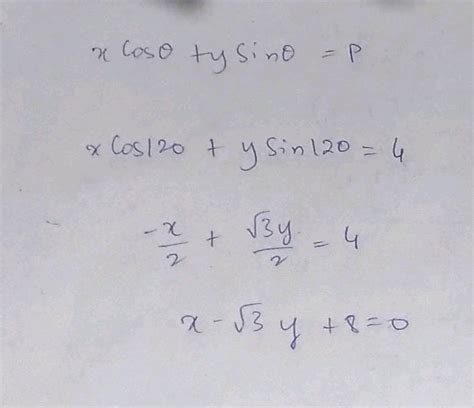 x Cosθ + y Sinθ = P
x Cos120 + y Sin120 = 4
-x/2 + √3y/2 = 4
x - √3 y + 8 = 0